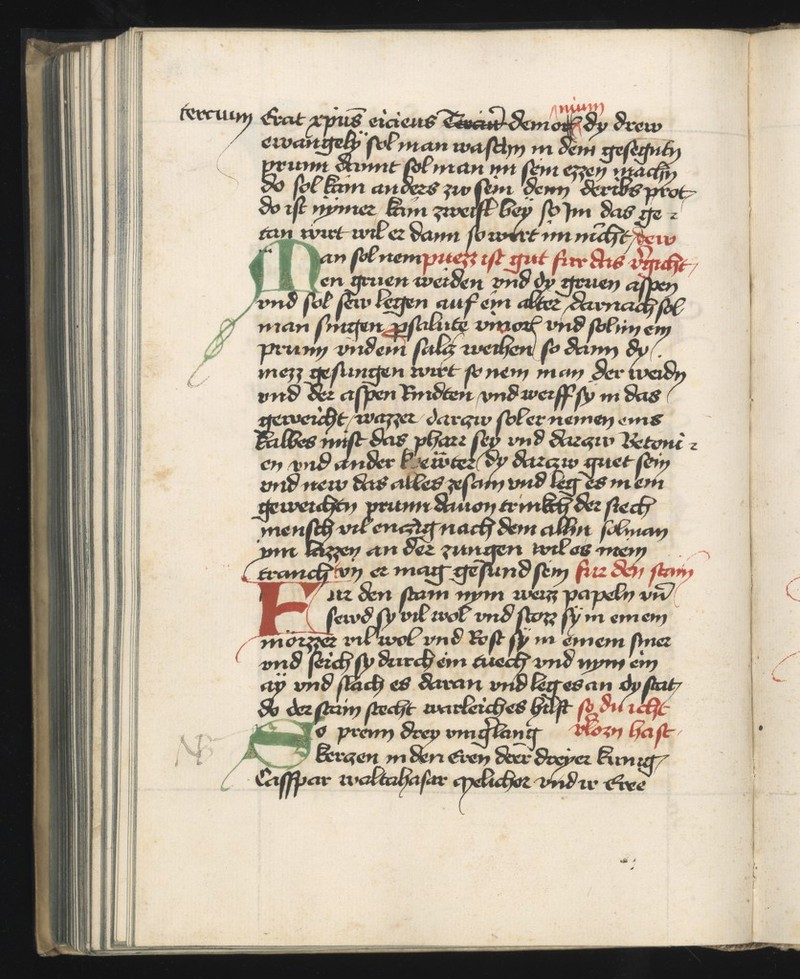 tercium Erat xpus eiciens demonium dy drew
ewangely sol man waschn in dem gesegntn
prunn damit sol man im sein ezzen machn
do sol kain anders zw sein denn deribs prot
do ist nymer kain zweifl bey so Im das ge
tan wirt wil er dann so wirt im nicht dew
Man sol nem puezz ist gut fur das vgicht
en gruen weiden vnd dy gruen aspen
vnd sol sew legen auf ein alter darnach sol
man singen psalute vivor vnd sol im ein
prunn vnd ein salz weihen so dann dy
mezz gesungen wirt so nem man der weidn
vnd der aspen Rindten vnd werff sy in das
geweicht wazzer darzw sol er nemen eins
kalbes mist das pharr sey vnd darzw Betoni
en vnd ander krewter dy darczw guet sein
vnd new das alles zesam vnd leg es in ein
geweichtn prunn dauon trinkch der siech
mensch vil enczig nach dem allm sol man
ym lazzen an der zungen wil es mein
tranch vn er mag gesund sein fur den stain
Fur den stain nym weiz papeln vn
sewd sy vil wol vnd stozz sy in einem
mörzzer vil wol vnd Rost sy in einem smer
vnd seich sy durch ein tuech vnd nym ein
ay vnd slach es daran vnd leg es an dy stat
do der stain stecht warleiches hilft so du icht
So prenn drey vinglang vlorn hast
kerzen in den Eren der dreyer kunig
Casspar waltahasar Melichor vnd ir Eree